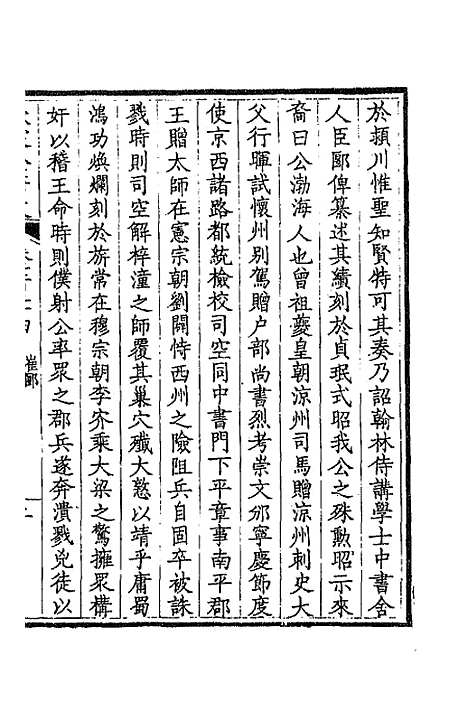 於潁川惟聖知賢特可其奏乃詔翰林侍講學士中書舍
人臣郾俾纂述其績刻於貞珉式昭我公之殊勳昭示來
裔曰公渤海人也曾祖夔皇朝涼州司馬贈涼州刺史大
父行暉試懷州別駕贈户部尚書烈考崇文邠寧慶節度
使京西諸路都統檢校司空同中書門下平章事南平郡
王贈太師在憲宗朝劉闢恃西州之險阻兵自固卒被誅
戮時則司空解梓潼之師覆其巢穴殲大憝以靖乎庸蜀
鴻功煥爛刻於旂常在穆宗朝李㝏乘大梁之驚擁眾構
奸以稽王命時則僕射公率眾之郡兵遂奔潰戮兇徒以
崔郾